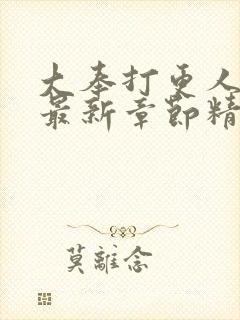 大奉打更人
最新章節精
莫離念